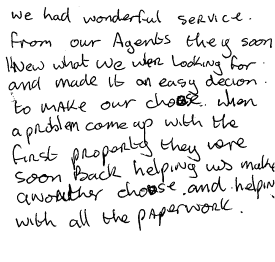 we had wonderful service.
from our Agents they soon
knew what we were looking for.
and made it an easy decion.
to make our choose. when
a problem come up with the
first property they were
soon Back helping us make
another choose. and helpin
with all the paperwork.